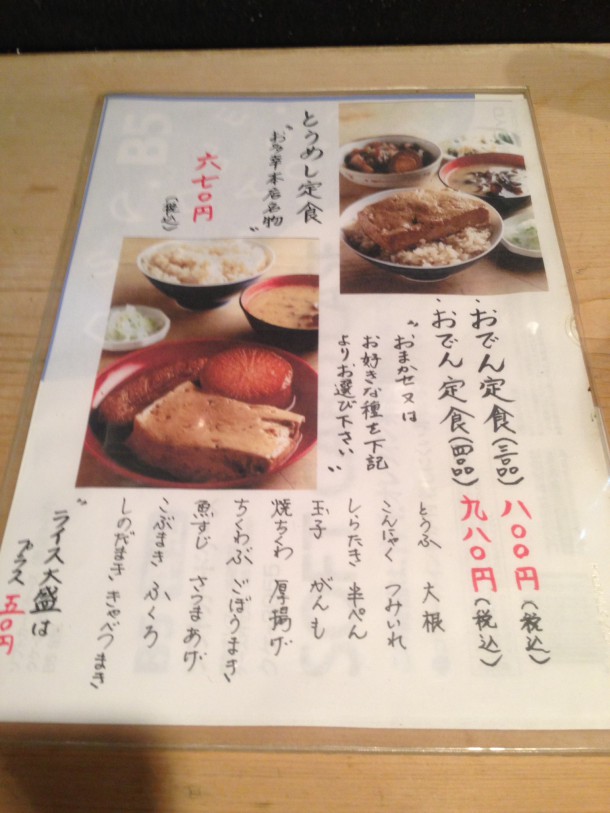 とうめし定食
"お多幸本店名物"
六七〇円
(税込)
・おでん定食(三品) 八〇〇円(税込)
・おでん定食(四品) 九八〇円(税込)
"おまかせ又は
お好きな種を下記
よりお選び下さい"
とうふ 大根
こんにゃく つみいれ
しらたき 半ぺん
玉子 がんも
焼ちくわ 厚揚げ
ちくわぶ ごぼうまき
魚すじ さつまあげ
こぶまき ふくろ
しのだまき きゃべつまき
"ライス大盛は
プラス 五〇円